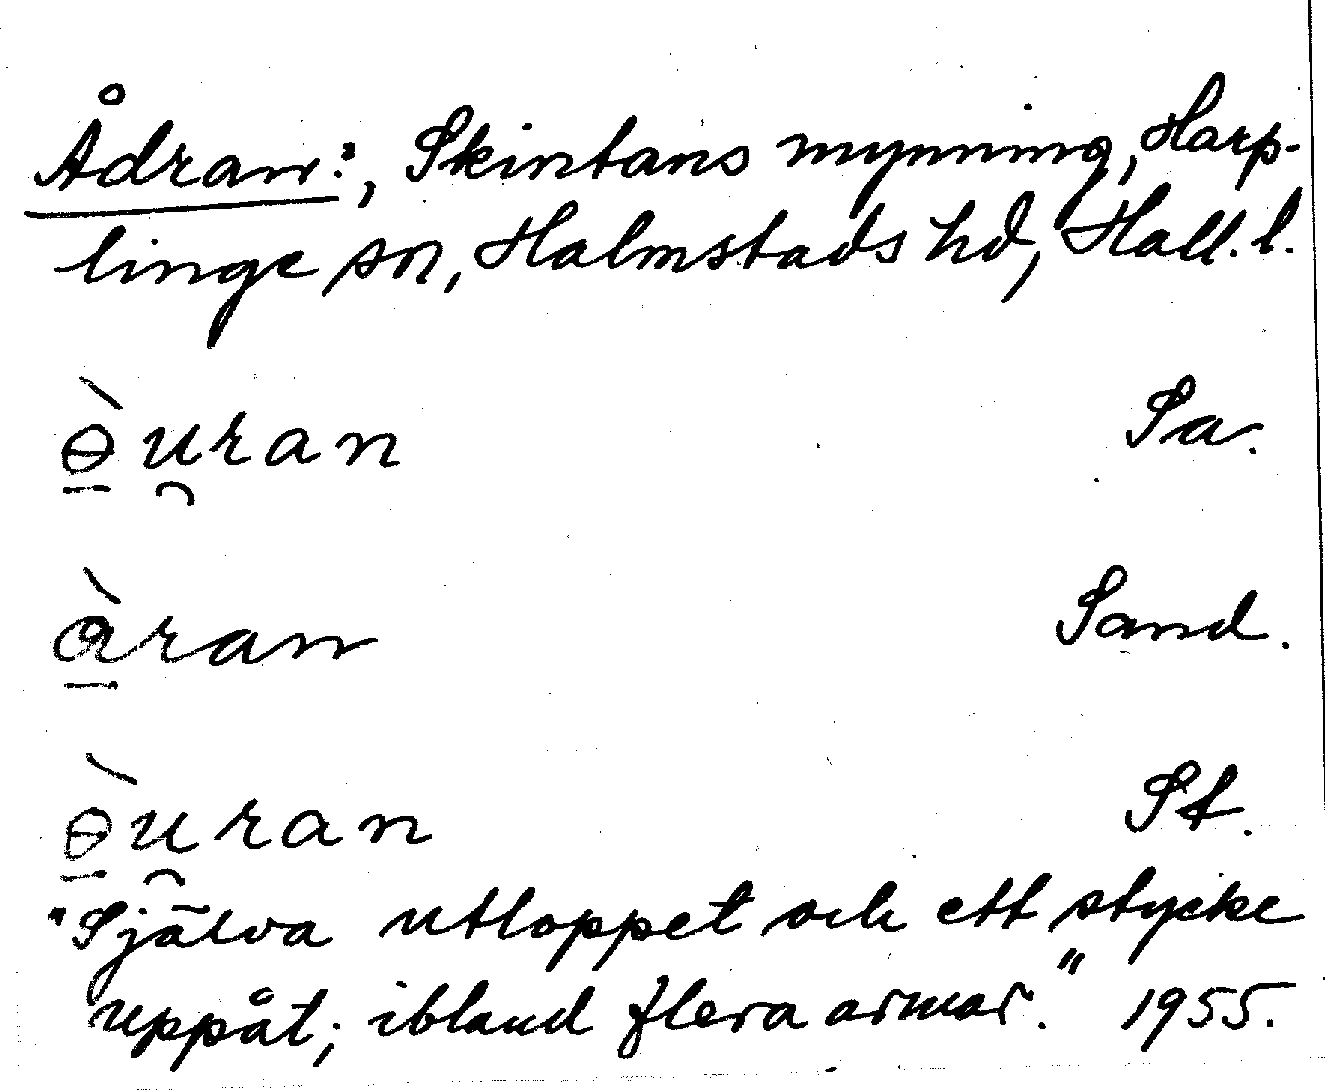 Ådran:, Skintans mynning, Harp-
linge sn, Halmstads hd, Hall. l.
ɵ̱̀u̯ran Sa.
å̱̀ran Sand.
ɵ̱̀u̯ran St.
"Själva utloppet och ett stycke
uppåt; ibland flera armar." 1955.